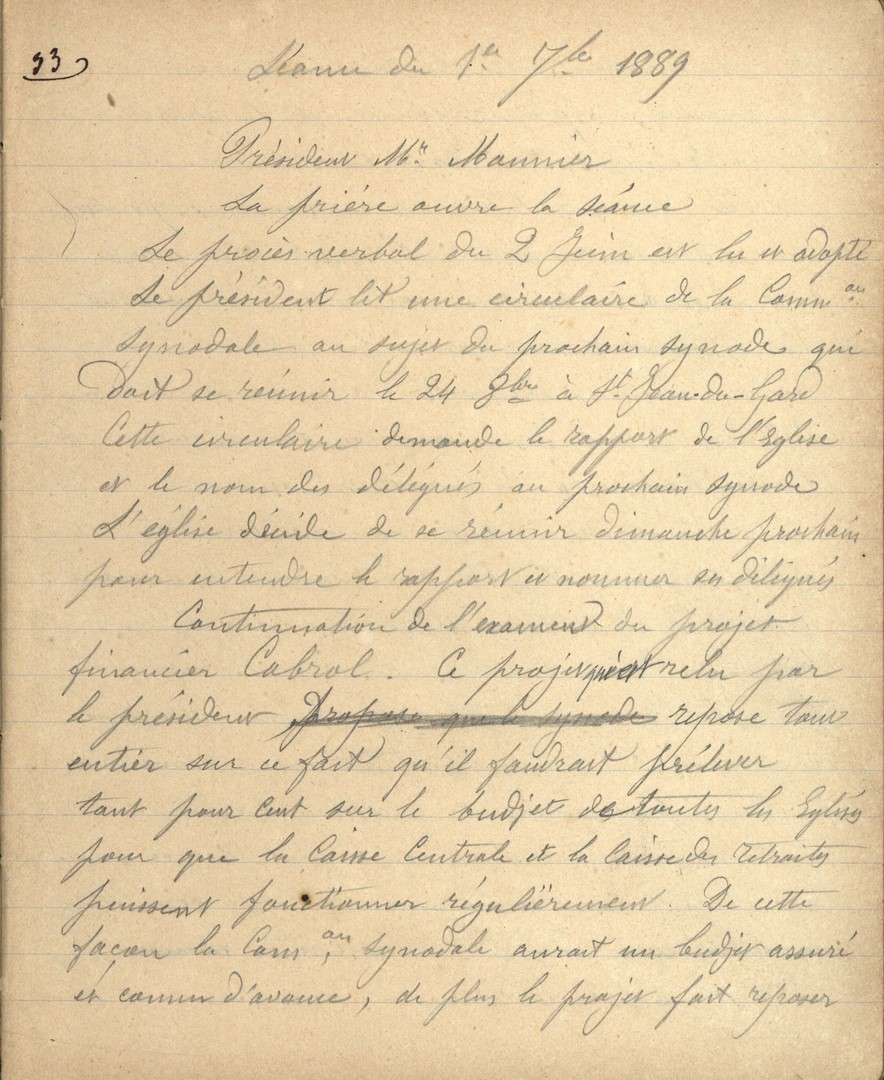 33
Séance du 1er 7bre 1889
Président Mr. Mounier
La prière ouvre la séance
Le procès-verbal du 2 Juin est lu et adopté
Le président lit une circulaire de la Common
synodale au sujet du prochain synode qui
doit se réunir le 24 8bre à St. Jean-du-Gard
Cette circulaire demande le rapport de l'Eglise
et le nom des délégués au prochain synode
L'église décide de se réunir dimanche prochain
pour entendre le rapport et nommer ses délégués
Continuation de l'examen du projet
financier Cabrol. Ce projet qui est relu par
le président propose que le synode repose tout
entier sur ce fait qu'il faudrait prélever
tant pour cent sur le budjet de toutes les Eglises
pour que la Caisse Centrale et la Caisse des retraites
puissent fonctionner régulièrement. De cette
façon la Comon synodale aurait un budjet assuré
et connu d'avance, de plus le projet fait reposer